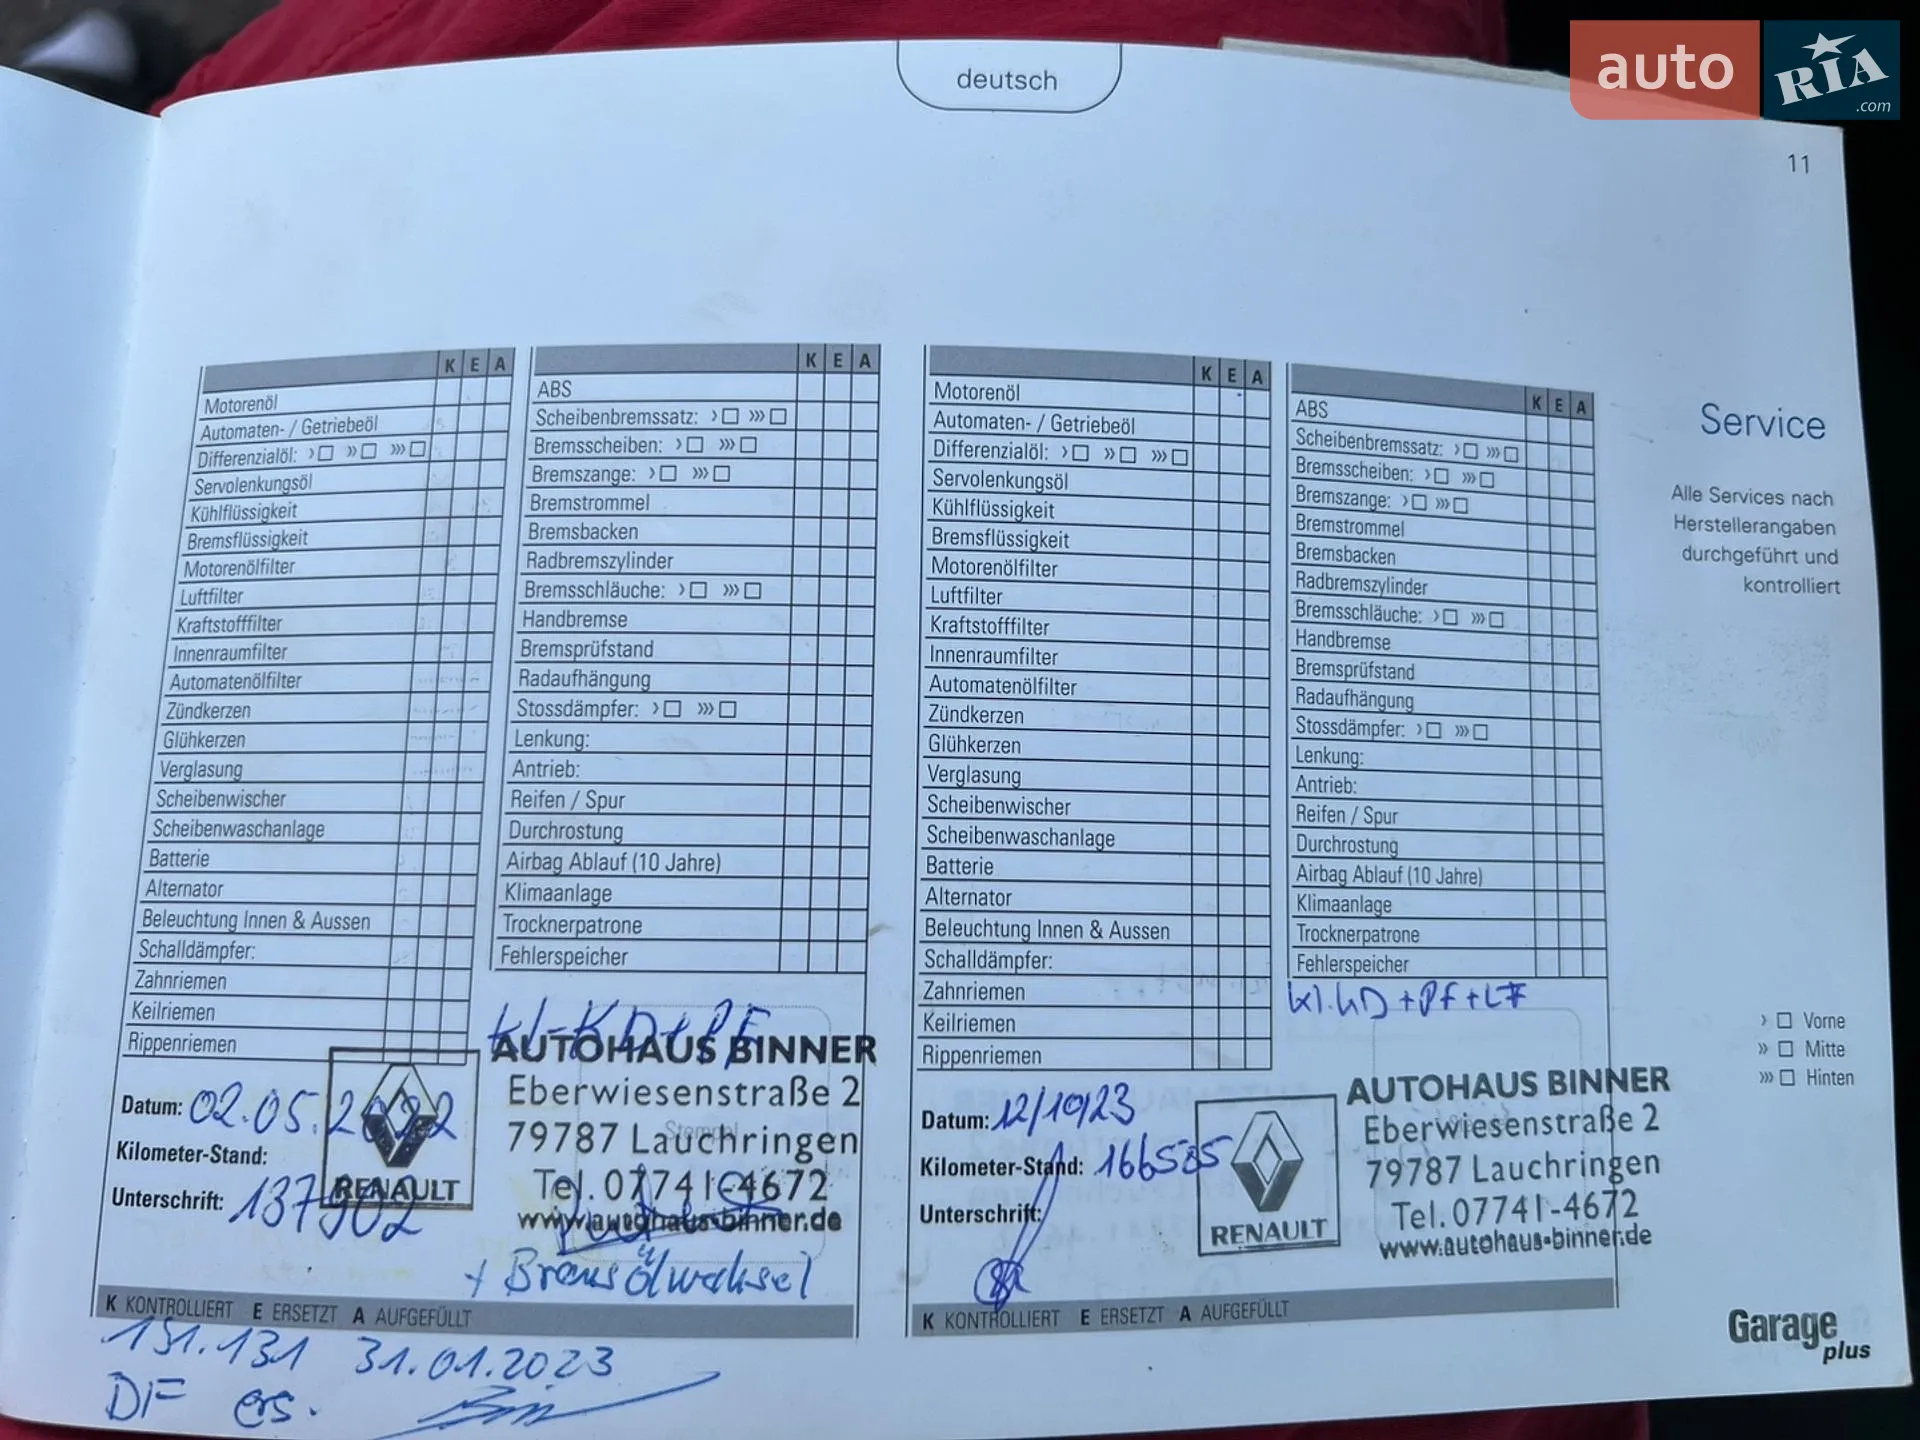 auto RIA.com
deutsch
11
K E A
Motorenöl
Automaten- / Getriebeöl
Differenzialöl: › □ » □ ››› □
Servolenkungsöl
Kühlflüssigkeit
Bremsflüssigkeit
Motorenölfilter
Luftfilter
Kraftstofffilter
Innenraumfilter
Automatenölfilter
Zündkerzen
Glühkerzen
Verglasung
Scheibenwischer
Scheibenwaschanlage
Batterie
Alternator
Beleuchtung Innen & Aussen
Schalldämpfer:
Zahnriemen
Keilriemen
Rippenriemen
K E A
ABS
Scheibenbremssatz: › □ ››› □
Bremsscheiben: › □ ››› □
Bremszange: › □ ››› □
Bremstrommel
Bremsbacken
Radbremszylinder
Bremsschläuche: › □ ››› □
Handbremse
Bremsprüfstand
Radaufhängung
Stossdämpfer: › □ ››› □
Lenkung:
Antrieb:
Reifen / Spur
Durchrostung
Airbag Ablauf (10 Jahre)
Klimaanlage
Trocknerpatrone
Fehlerspeicher
Kl-KD+PF
Datum: 02.05.2022
Kilometer-Stand:
Unterschrift: 137902
RENAULT
AUTOHAUS BINNER
Eberwiesenstraße 2
79787 Lauchringen
Stempel
Tel. 07741-4672
www.autohaus-binner.de
+ Bremsölwechsel
K KONTROLLIERT E ERSETZT A AUFGEFÜLLT
151.131 31.01.2023
DF ers.
K E A
Motorenöl
Automaten- / Getriebeöl
Differenzialöl: › □ » □ ››› □
Servolenkungsöl
Kühlflüssigkeit
Bremsflüssigkeit
Motorenölfilter
Luftfilter
Kraftstofffilter
Innenraumfilter
Automatenölfilter
Zündkerzen
Glühkerzen
Verglasung
Scheibenwischer
Scheibenwaschanlage
Batterie
Alternator
Beleuchtung Innen & Aussen
Schalldämpfer:
Zahnriemen
Keilriemen
Rippenriemen
K E A
ABS
Scheibenbremssatz: › □ ››› □
Bremsscheiben: › □ ››› □
Bremszange: › □ ››› □
Bremstrommel
Bremsbacken
Radbremszylinder
Bremsschläuche: › □ ››› □
Handbremse
Bremsprüfstand
Radaufhängung
Stossdämpfer: › □ ››› □
Lenkung:
Antrieb:
Reifen / Spur
Durchrostung
Airbag Ablauf (10 Jahre)
Klimaanlage
Trocknerpatrone
Fehlerspeicher
Kl.KD+PF+LF
Datum: 12/10/23
Kilometer-Stand: 166585
Unterschrift:
RENAULT
AUTOHAUS BINNER
Eberwiesenstraße 2
79787 Lauchringen
Tel. 07741-4672
www.autohaus-binner.de
K KONTROLLIERT E ERSETZT A AUFGEFÜLLT
Service
Alle Services nach
Herstellerangaben
durchgeführt und
kontrolliert
› □ Vorne
» □ Mitte
››› □ Hinten
Garage
plus